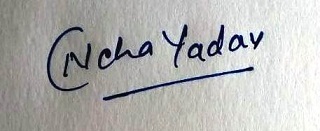 Neha Yadav